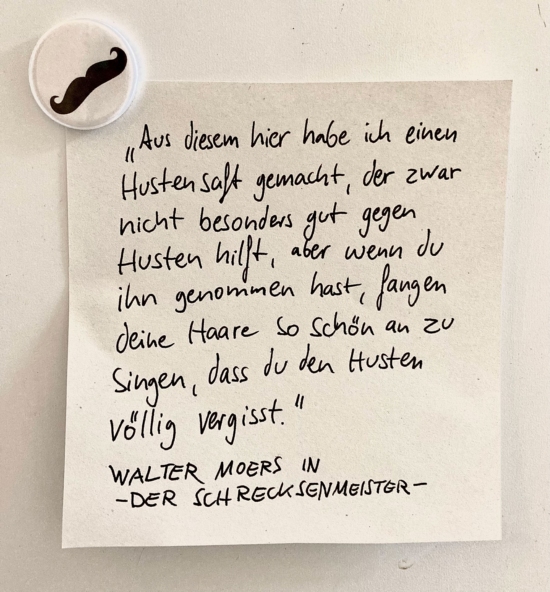 „Aus diesem hier habe ich einen
Hustensaft gemacht, der zwar
nicht besonders gut gegen
Husten hilft, aber wenn du
ihn genommen hast, fangen
deine Haare so schön an zu
singen, dass du den Husten
völlig vergisst."
WALTER MOERS IN
-DER SCHRECKSENMEISTER-